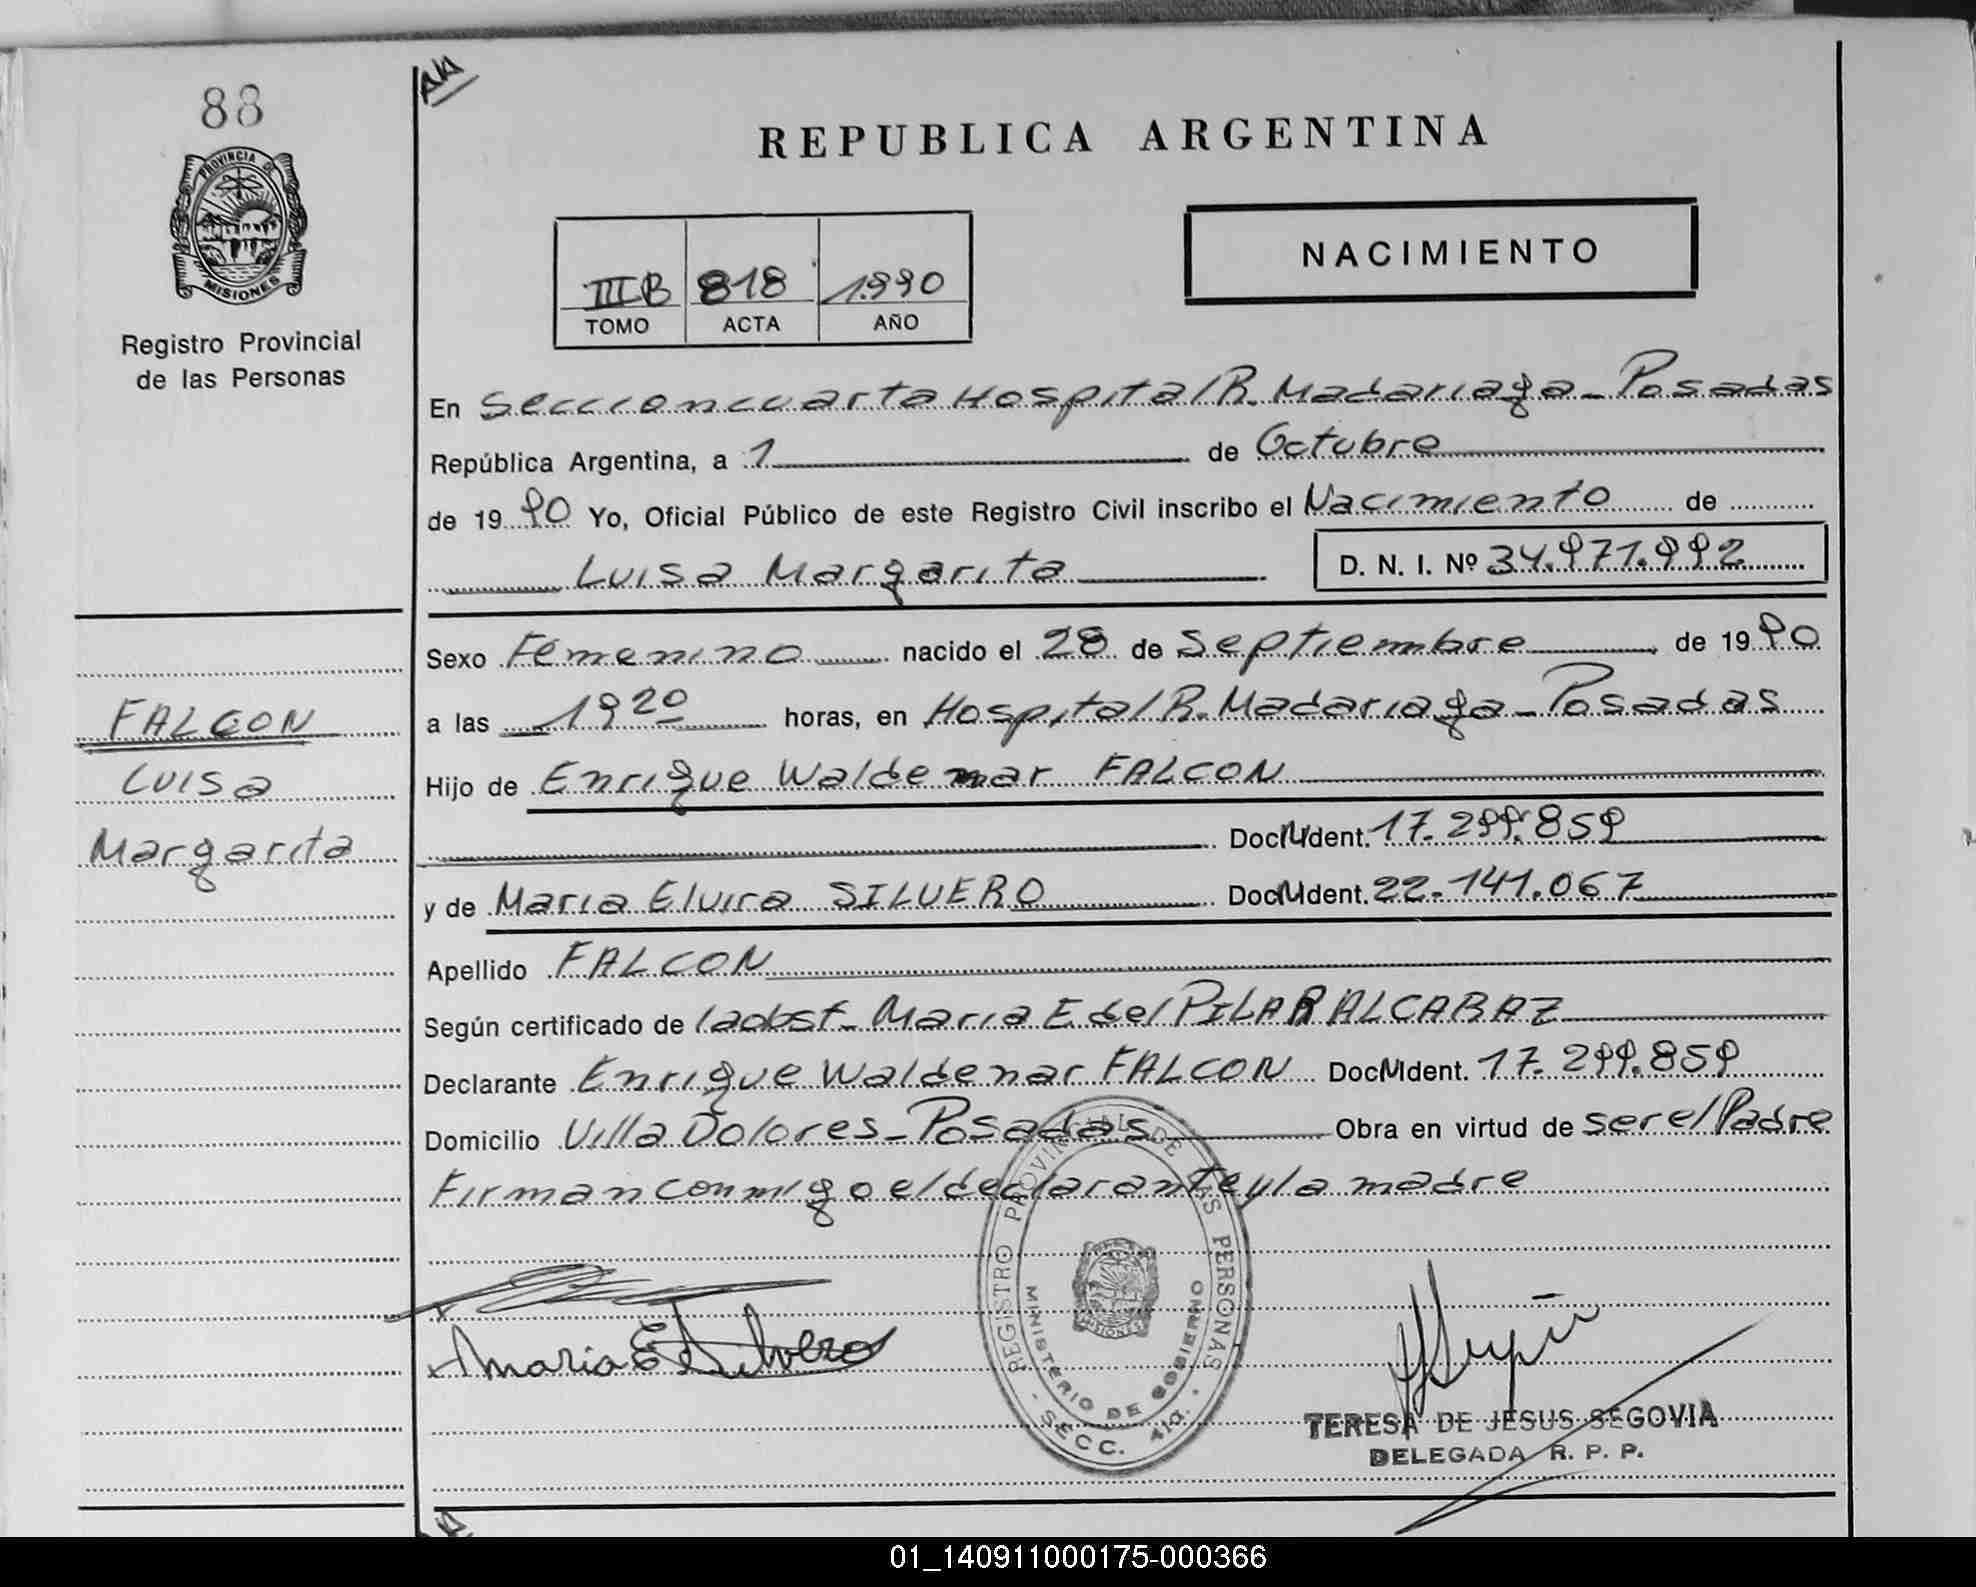 88
PROVINCIA DE
MISIONES
Registro Provincial
de las Personas
FALCON
Luisa
Margarita
REPUBLICA ARGENTINA
IIIB 818 1.990
TOMO ACTA AÑO
NACIMIENTO
En Seccion cuarta Hospital R. Madariaga - Posadas
República Argentina, a 1 de Octubre
de 1990 Yo, Oficial Público de este Registro Civil inscribo el Nacimiento de
Luisa Margarita D. N. I. Nº 34.971.992
Sexo Femenino nacido el 28 de Septiembre de 1990
a las 1920 horas, en Hospital R. Madariaga - Posadas
Hijo de Enrique Waldemar FALCON
Doc. Ident. 17.299.859
y de Maria Elvira SILVERO Doc. Ident. 22.141.067
Apellido FALCON
Según certificado de la obst. Maria E del PILAR ALCARAZ
Declarante Enrique Waldemar FALCON Doc. Ident. 17.299.859
Domicilio Villa Dolores - Posadas Obra en virtud de ser el Padre
Firman conmigo el declarante y la madre
REGISTRO PROVINCIAL DE LAS PERSONAS
MINISTERIO DE GOBIERNO
- SECC. 4ta. -
Maria E Silvero
TERESA DE JESUS SEGOVIA
DELEGADA R. P. P.
01_140911000175-000366